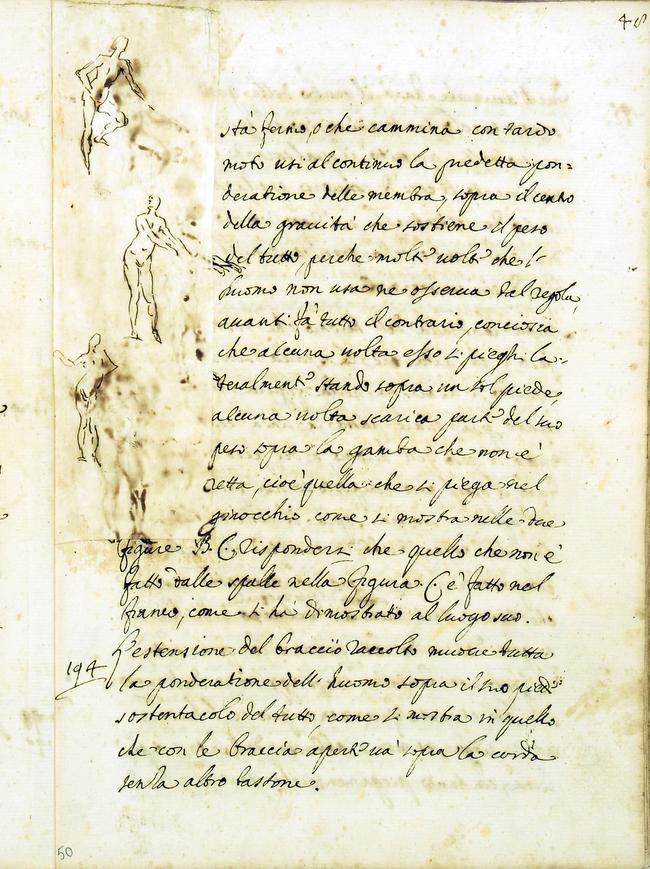 48
sta fermo, o che cammina con tardo
moto usi al continuo la predetta pon=
deratione delle membra, sopra il centro
della gravità che sostiene il peso
del tutto, perche molte volte che l'
huomo non usa ne osserva tal regola,
avanti fà tutto il contrario, conciosia
che alcuna volta esso si pieghi la-
teralmente stando sopra un sol piede,
alcuna volta scarica parte del suo
peso sopra la gamba che non è
retta, cioè quella che si piega nel
ginocchio come si mostra nelle due
figure B. C. rispondersi che quello che non è
fatto dalle spalle nella figura C. è fatto nel
fianco, come si hà dimostrato al luogo suo.
194
L'estensione del braccio raccolto muove tutta
la ponderatione dell' huomo sopra il suo piede
sostentacolo del tutto, come si mostra in quello
che con le braccia aperte và sopra la corda
senza altro bastone.
50